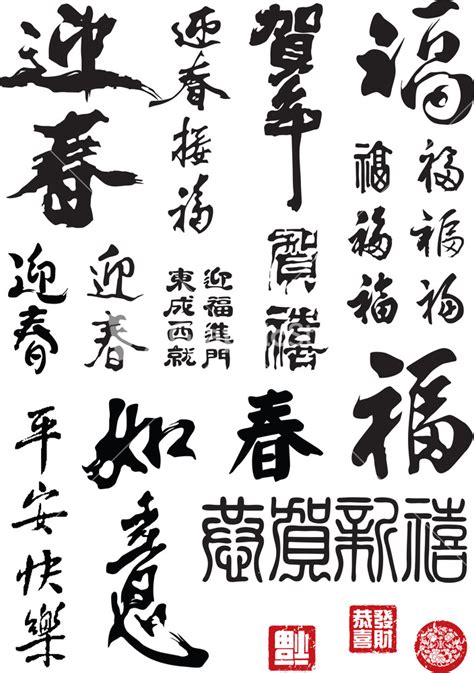 迎春
迎春接福
賀年
福
福
福
福
福
福
福
賀禧
迎春
迎春
迎福進門
東成西就
春
福
平安快樂
如意
恭賀新禧
福
恭喜發財